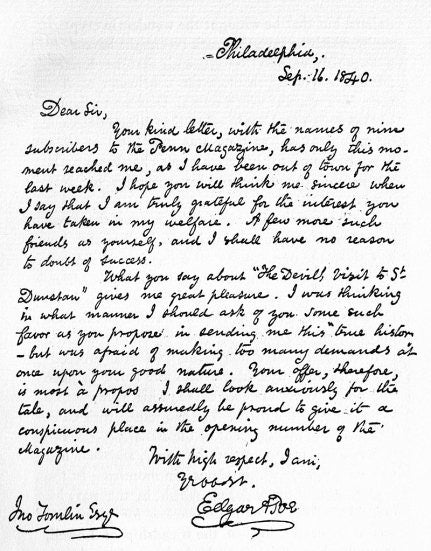 Philadelphia,.
Sep. 16. 1840.
Dear Sir,
Your kind letter, with the names of nine
subscribers to the Penn Magazine, has only this mo-
ment reached me, as I have been out of town for the
last week. I hope you will think me sincere when
I say that I am truly grateful for the interest you
have taken in my welfare. A few more such
friends as yourself, and I shall have no reason
to doubt of success.
What you say about "The Devil's Visit to St
Dunstan" gives me great pleasure. I was thinking
in what manner I should ask of you some such
favor as you propose in sending me this "true history
- but was afraid of making too many demands at
once upon your good nature. Your offer, therefore,
is most à propos I shall look anxiously for the
tale, and will assuredly be proud to give it a
conspicuous place in the opening number of the
Magazine.
With high respect, I am,
Yr ob St.
Edgar A Poe
Jno Tomlin Esqr